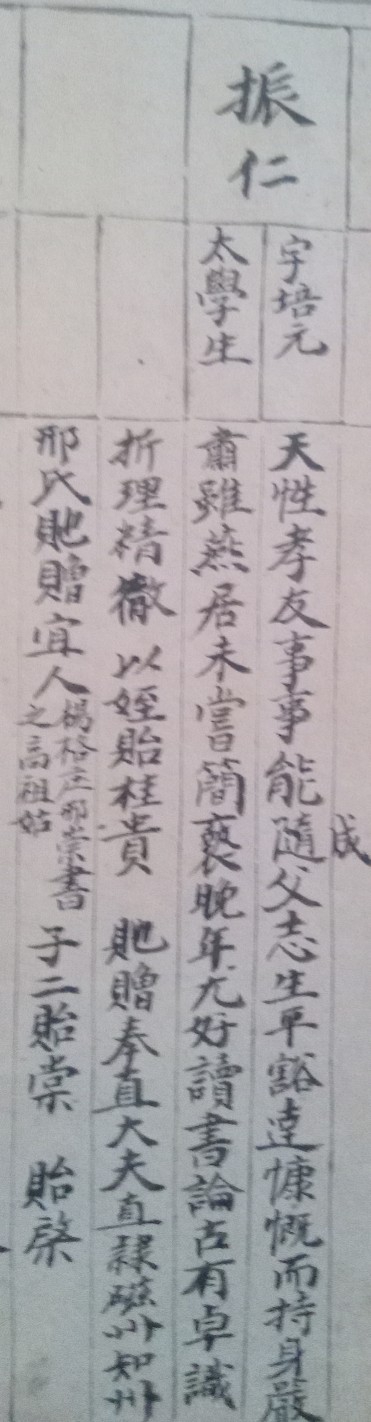 振仁
字培元
太學生
成
天性孝友事事能隨父志生平豁達慷慨而持身嚴
肅雖燕居未嘗簡褻晚年尤好讀書論古有卓識
折理精徹以姪貽桂貴 貤贈奉直大夫直隸磁州知州
邢氏貤贈宜人楊格庄邢崇書之高祖姑 子二貽棠 貽棨